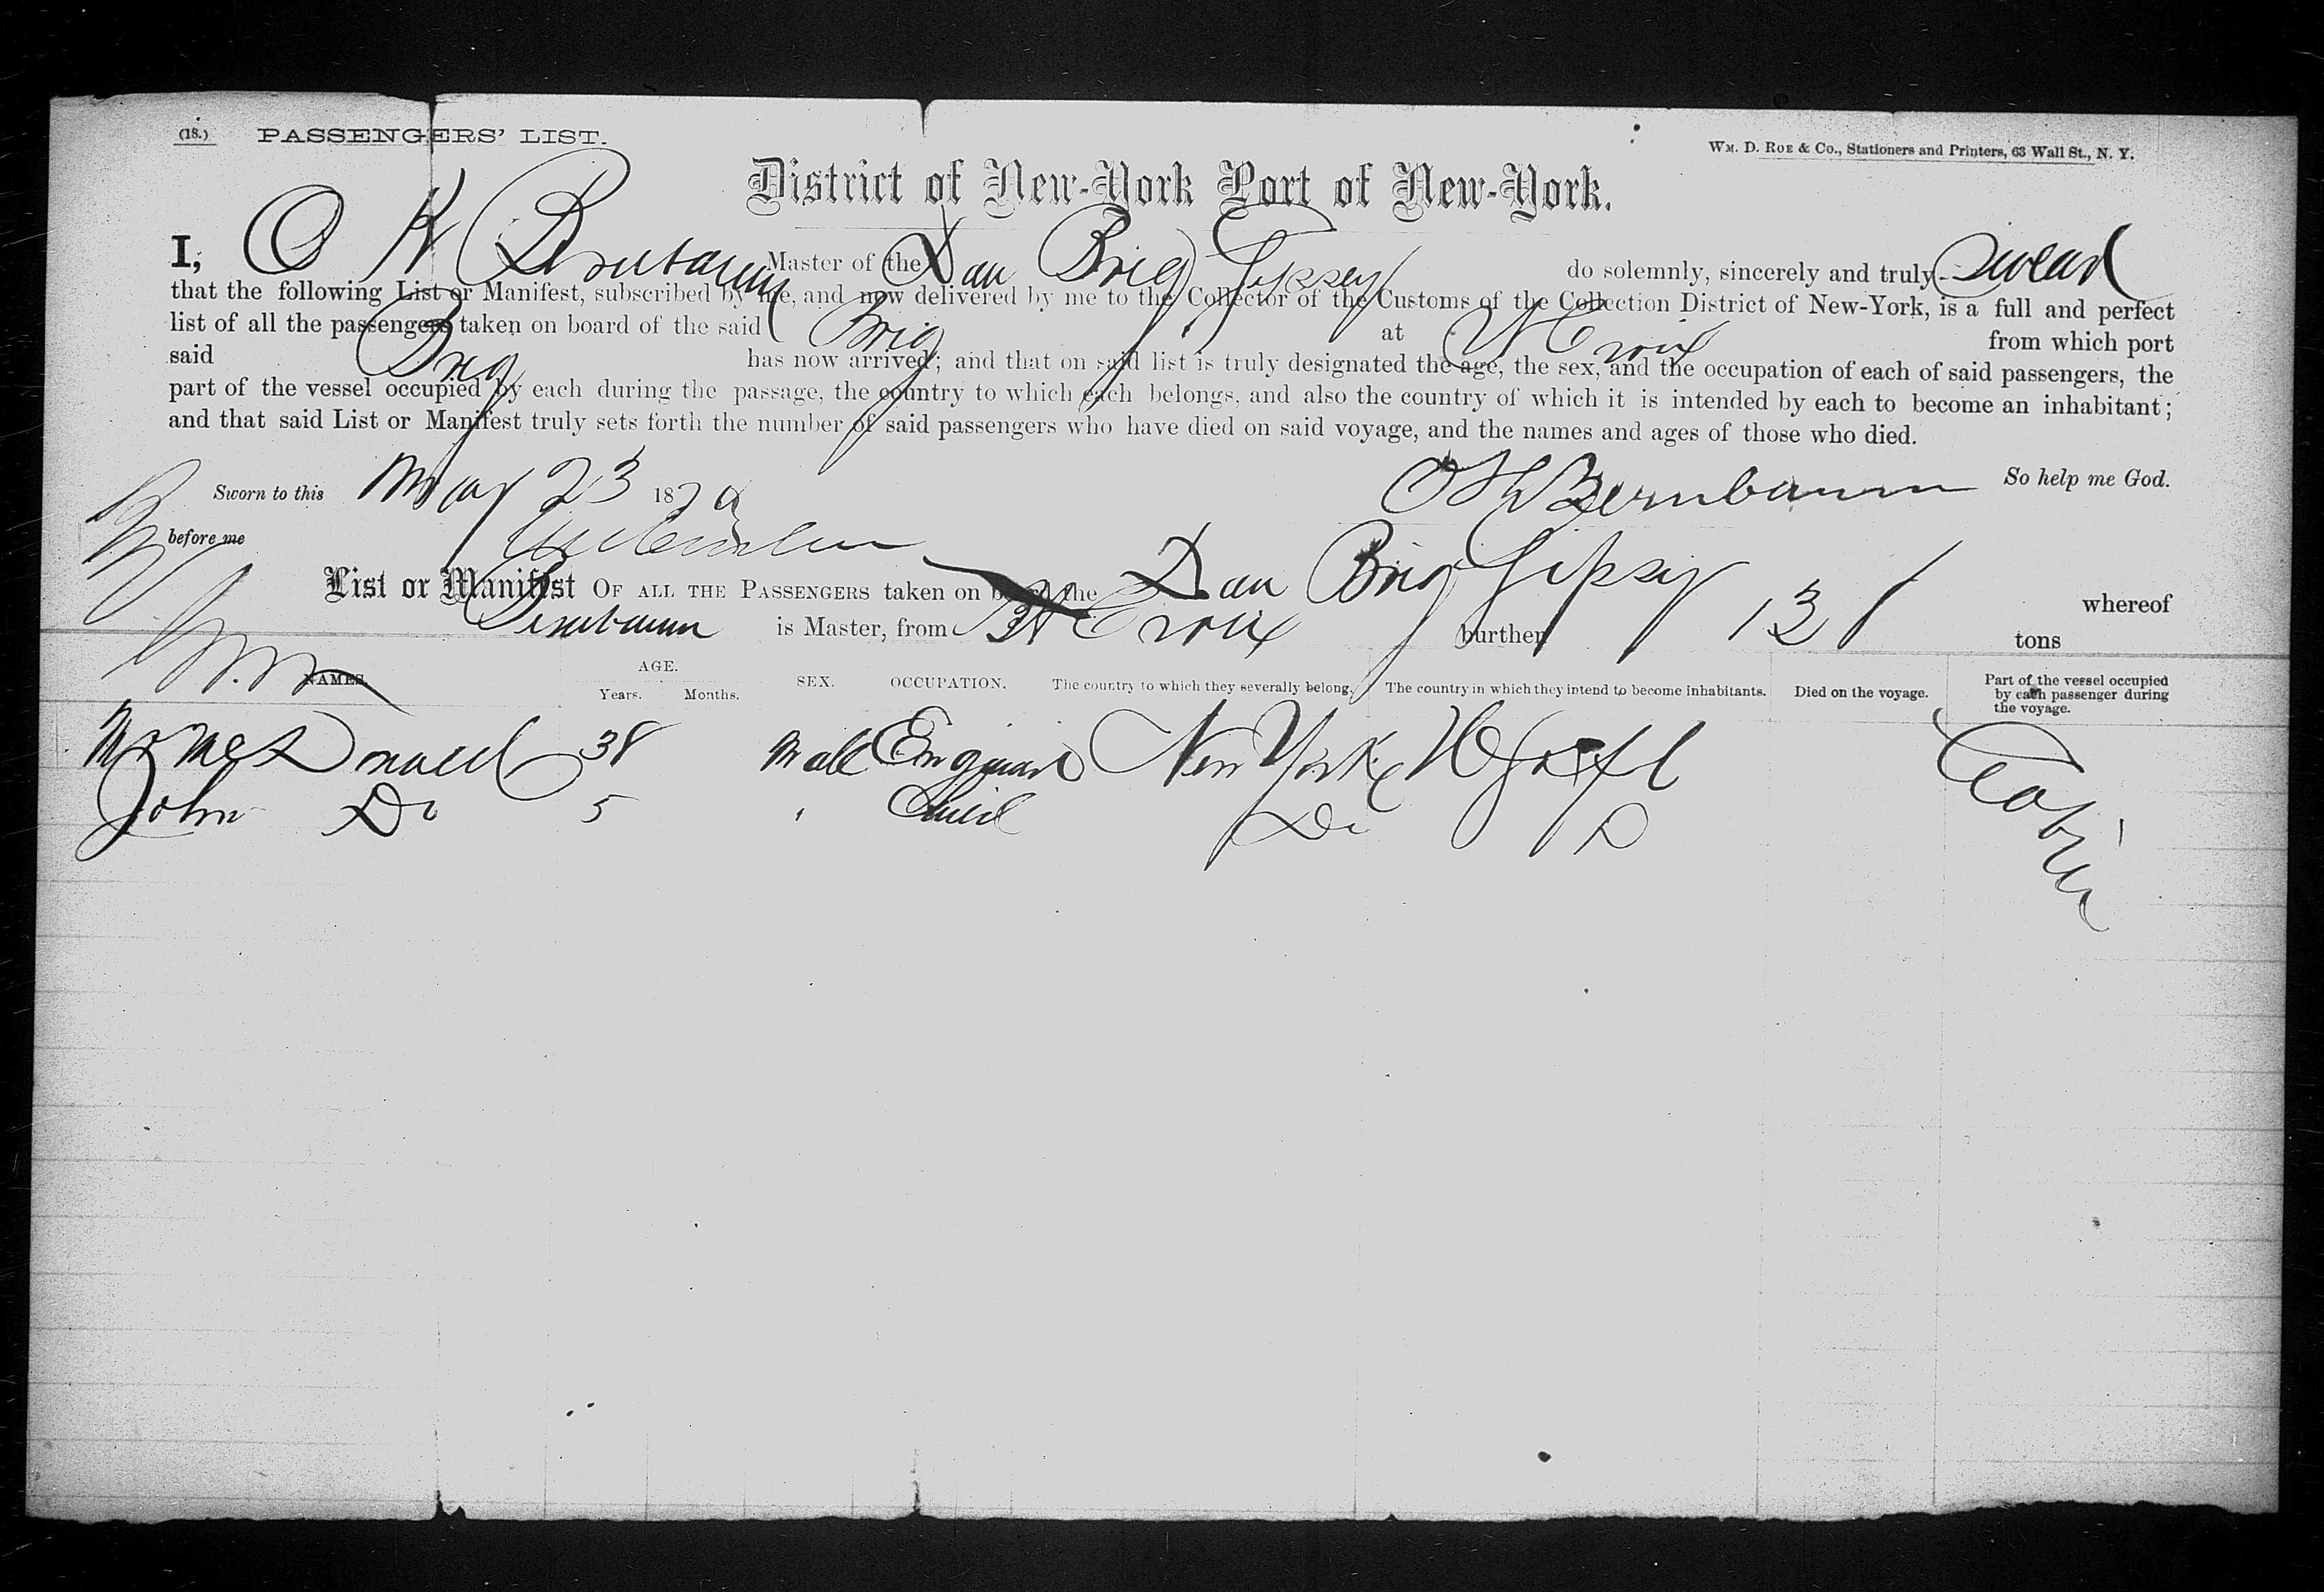 (18.) PASSENGERS' LIST.
WM. D. ROE & CO., Stationers and Printers, 63 Wall St., N. Y.
District of New-York Port of New-York.
I, O Bernbaum Master of the Dan Brig Gipsey do solemnly, sincerely and truly Swear
that the following List or Manifest, subscribed by me, and now delivered by me to the Collector of the Customs of the Collection District of New-York, is a full and perfect
list of all the passengers taken on board of the said Brig at St Croix from which port
said Brig has now arrived; and that on said list is truly designated the age, the sex, and the occupation of each of said passengers, the
part of the vessel occupied by each during the passage, the country to which each belongs, and also the country of which it is intended by each to become an inhabitant;
and that said List or Manifest truly sets forth the number of said passengers who have died on said voyage, and the names and ages of those who died.
So help me God.
Sworn to this May 23 187
Bernbaum
before me
List or Manifest OF ALL THE PASSENGERS taken on board the Dan Brig Gipsey whereof
Bernbaum is Master, from St Croix burthen 131 tons
NAMES. AGE. Years. Months. SEX. OCCUPATION. The country to which they severally belong. The country in which they intend to become inhabitants. Died on the voyage. Part of the vessel occupied by each passenger during the voyage.
38 Male New York Cabin
John Do 5 " Child Do D